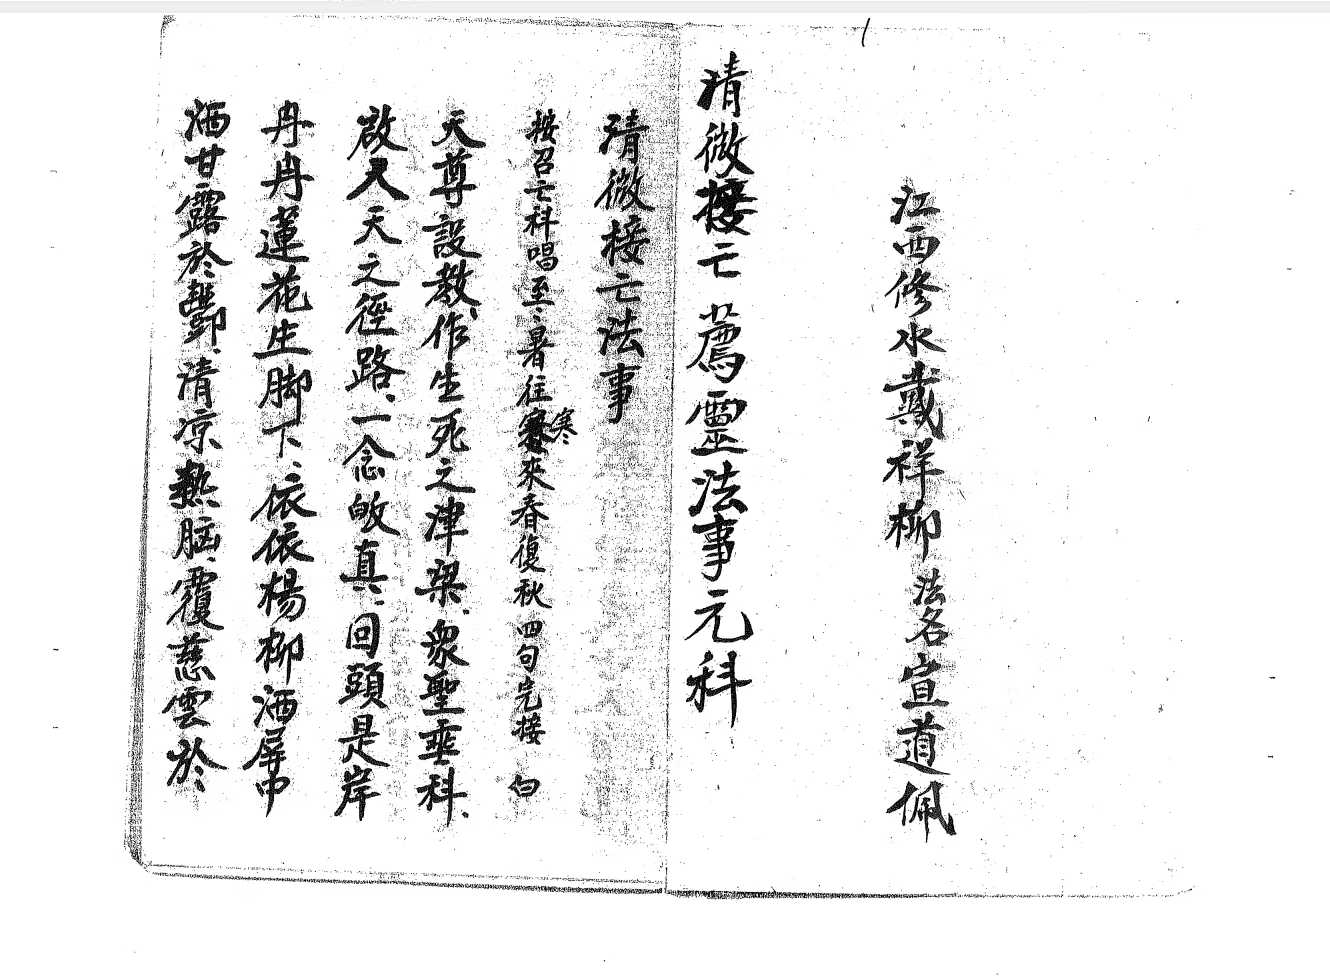 江西修水戴祥柳法名宣道佩
清微接亡薦靈法事元科
清微接亡法事
接召亡科唱至暑往寒來春復秋四句完接 白
寒
天尊設教、作生死之津梁、眾聖垂科、
啟人天之徑路、一念皈真、回頭是岸
冉冉蓮花生脚下、依依楊柳洒屏中
洒甘露於酆、清凉熱腦、覆慈雲於